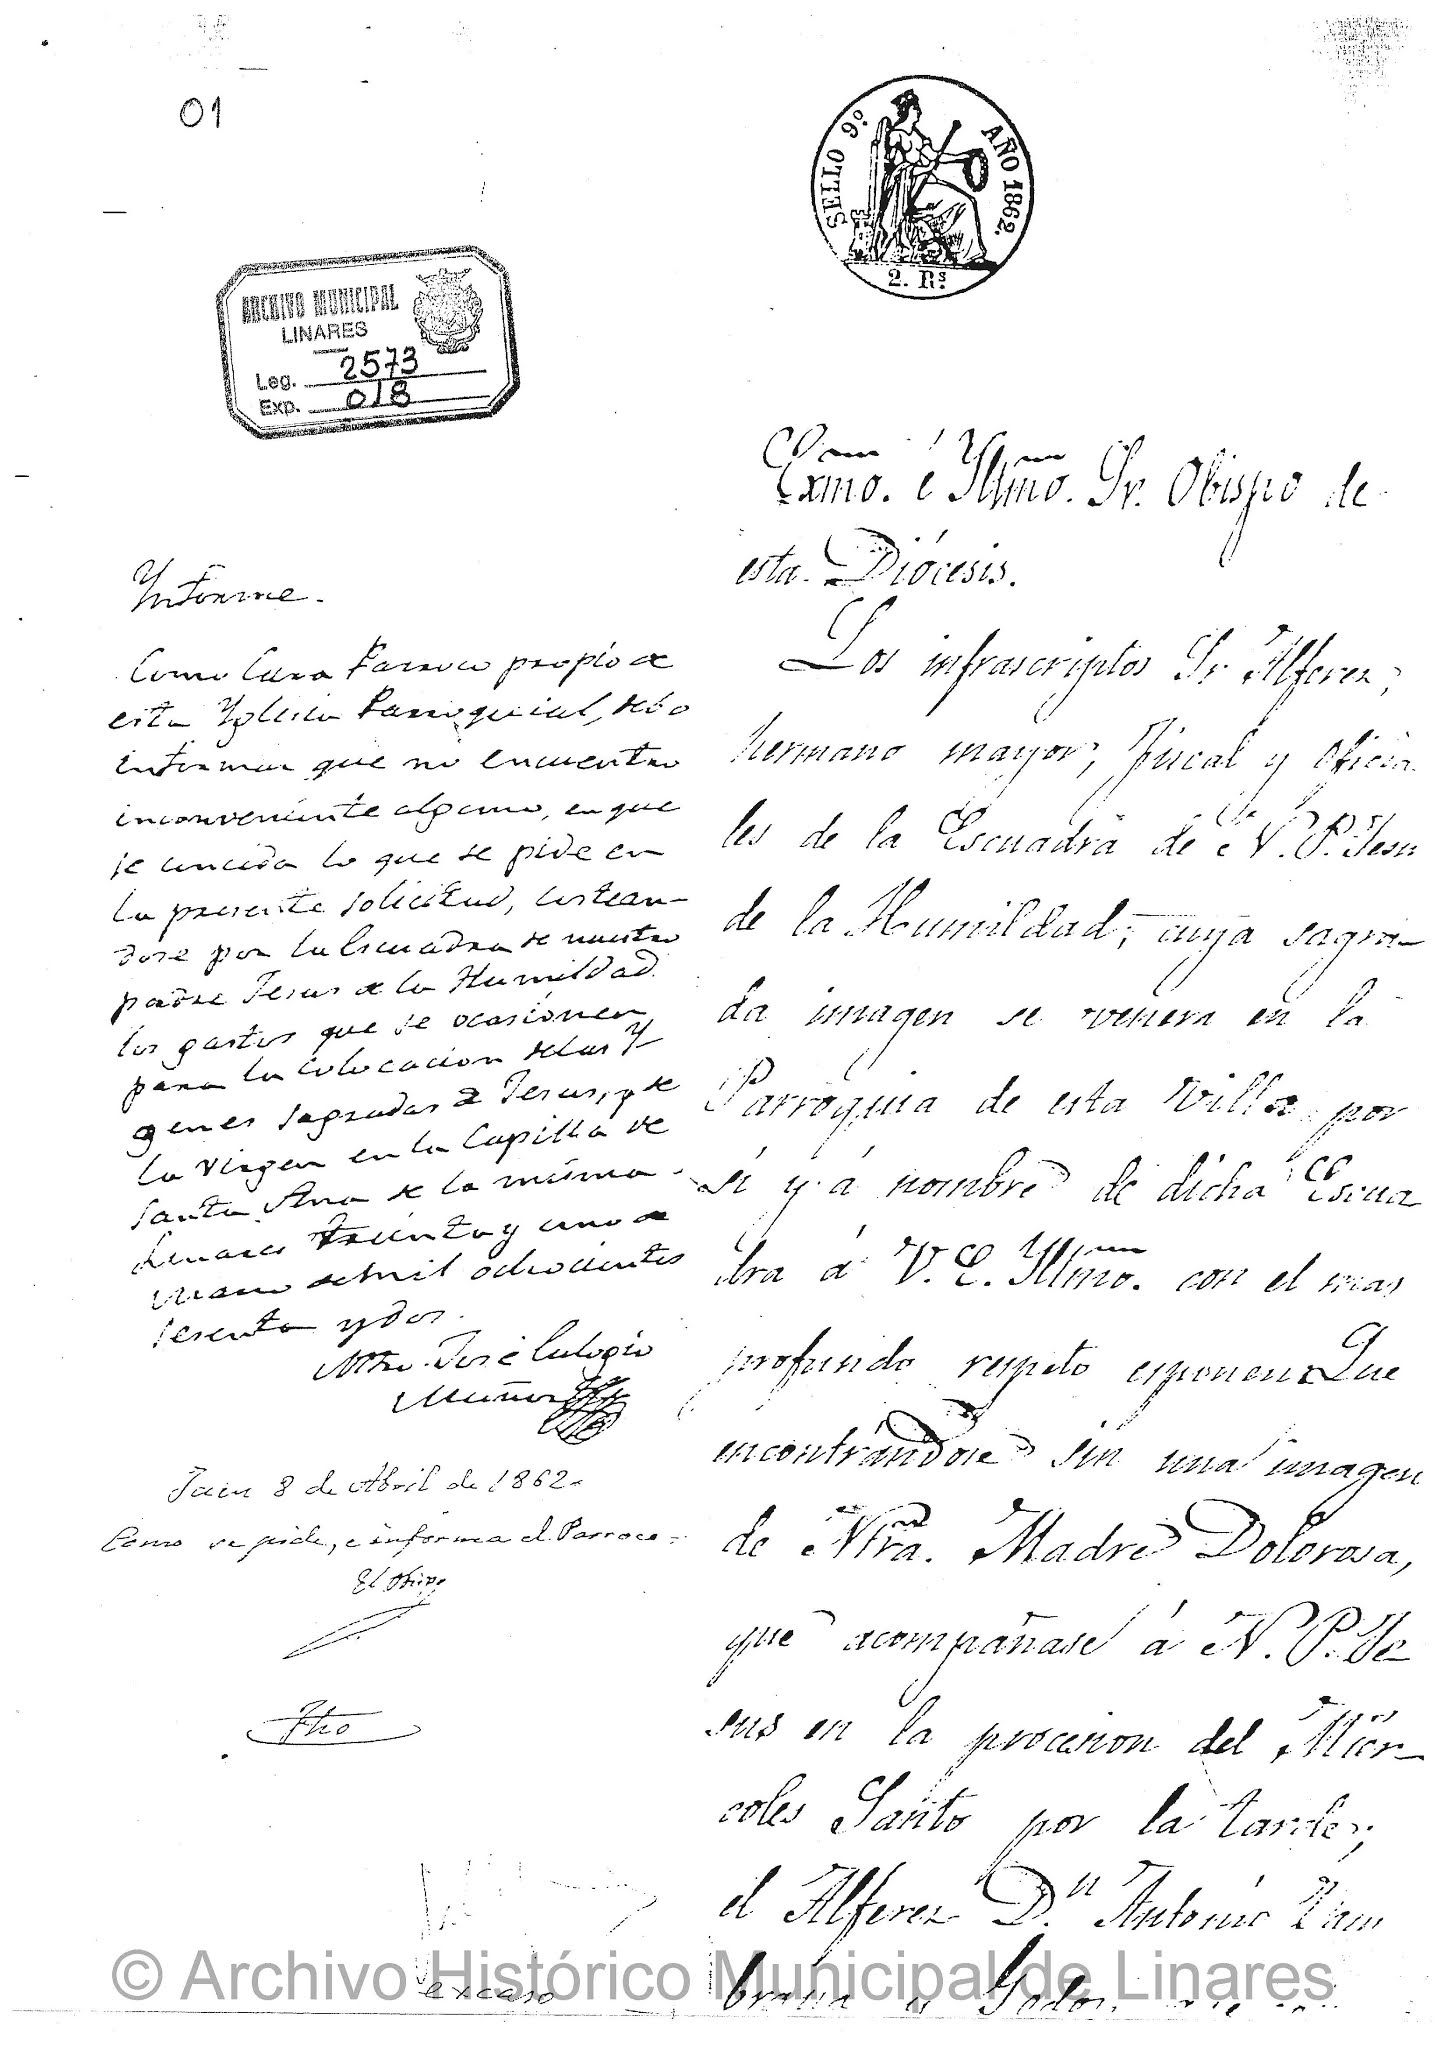 01
SELLO 9º AÑO 1862.
2. Rs
ARCHIVO MUNICIPAL
LINARES
Leg. 2573
Exp. 018
Exmo. é Yllmo. Sr. Obispo de
esta Diócesis.
Los infrascriptos Sr. Alferez,
hermano mayor, Fiscal y oficia
les de la Escuadra de N. P. Jesus
de la Humildad, cuya sagra
da imagen se venera en la
Parroquia de esta Villa por
si y á nombre de dicha Escua
dra á V. E. Yllmo. con el mas
profundo respeto esponen: Que
encontrándose sin una imagen
de Ntra. Madre Dolorosa,
que acompañase á N. P. Je
sus en la procesion del Miér
coles Santo por la tarde,
el Alferez D.n Antonio Zam
brana y
Ynforme.
Como Cura Parroco propio de
esta Yglesia Parroquial, debo
informar que no encuentro
inconveniente alguno, en que
se conceda lo que se pide en
la presente solicitud, costean-
dose por la Escuadra de nuestro
padre Jesus de la Humildad
los gastos que se ocasionen
para la colocacion de las Y
genes sagradas de Jesus, y de
la Virgen en la Capilla de
Santa Ana de la misma.
Linares treinta y uno de
Marzo de mil ochocientos
sesenta y dos.
Mtro. José Eulogio
Muñoz
Jaen 8 de Abril de 1862.
Como se pide, e informa el Parroco.
El Obispo
Fho
© Archivo Histórico Municipal de Linares